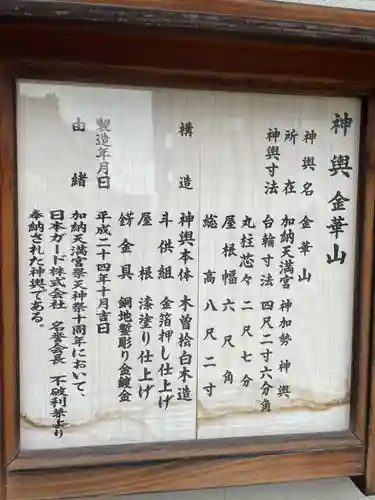 神輿 金華山
神輿名 金華山
所在 加納天満宮 神加勢 神輿
神輿寸法 台輪寸法 四尺二寸六分角
丸柱芯々 二尺七分
屋根幅 六尺角
総高 八尺二寸
構造 神輿本体 木曽桧白木造
斗供組 金箔押し仕上げ
屋根 漆塗り仕上げ
錺金具 銅地鏨彫り金鍍金
製造年月日 平成二十四年十月吉日
由緒 加納天満宮祭天神祭十周年において、
日本ガード株式会社 名誉会長 不破利兼より
奉納された神輿である。